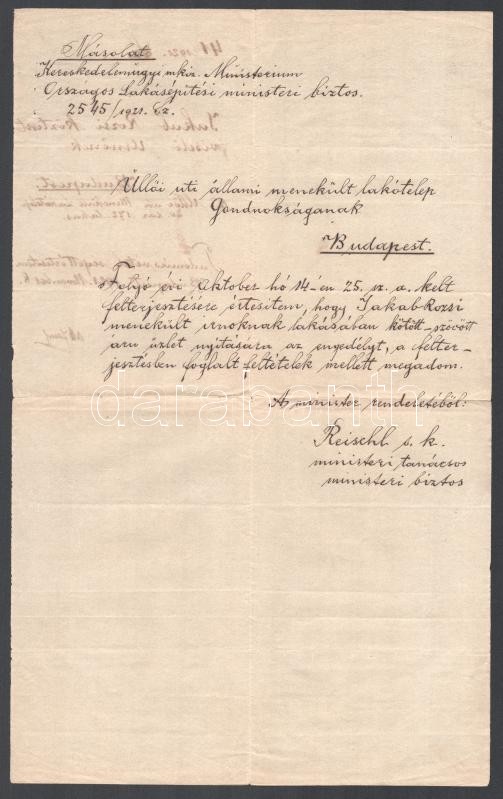 Másolat
Kereskedelemügyi m. kir. Ministerium
Országos Lakásépitési ministeri biztos.
2545/1921. sz.
Üllői uti állami menekült lakótelep
Gondnokságanak
Budapest.
Folyó évi október hó 14-én 25. sz. a. kelt
felterjesztésére értesitem, hogy Jakab Rozsi
menekült irnoknak lakásában kötött-szövött
áru üzlet nyitására az engedélyt, a felter-
jesztésben foglalt feltételek mellett megadom.
A minister rendeletéből:
Reischl s. k.
ministeri tanácsos
ministeri biztos
darabanth